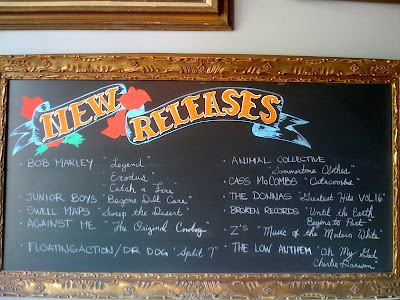 NEW RELEASES
• BOB MARLEY "Legend"
Exodus"
Catch a Fire"
JUNIOR BOYS "Begone Dull Care"
• SWELL MAPS "Sweep the Desert"
• AGAINST ME "The Original Cowboy"
• FLOATING ACTION / DR DOG "Split 7"
• ANIMAL COLLECTIVE
"Summertime Clothes"
• CASS McCOMBS "Catacombs"
• THE DONNAS "Greatest Hits VOL 16"
• BROKEN RECORDS "Until the Earth
Begins to Part"
• Z'S "Music of the Modern White"
• THE LOW AUTHEM "Oh My God
Charlie Darwin